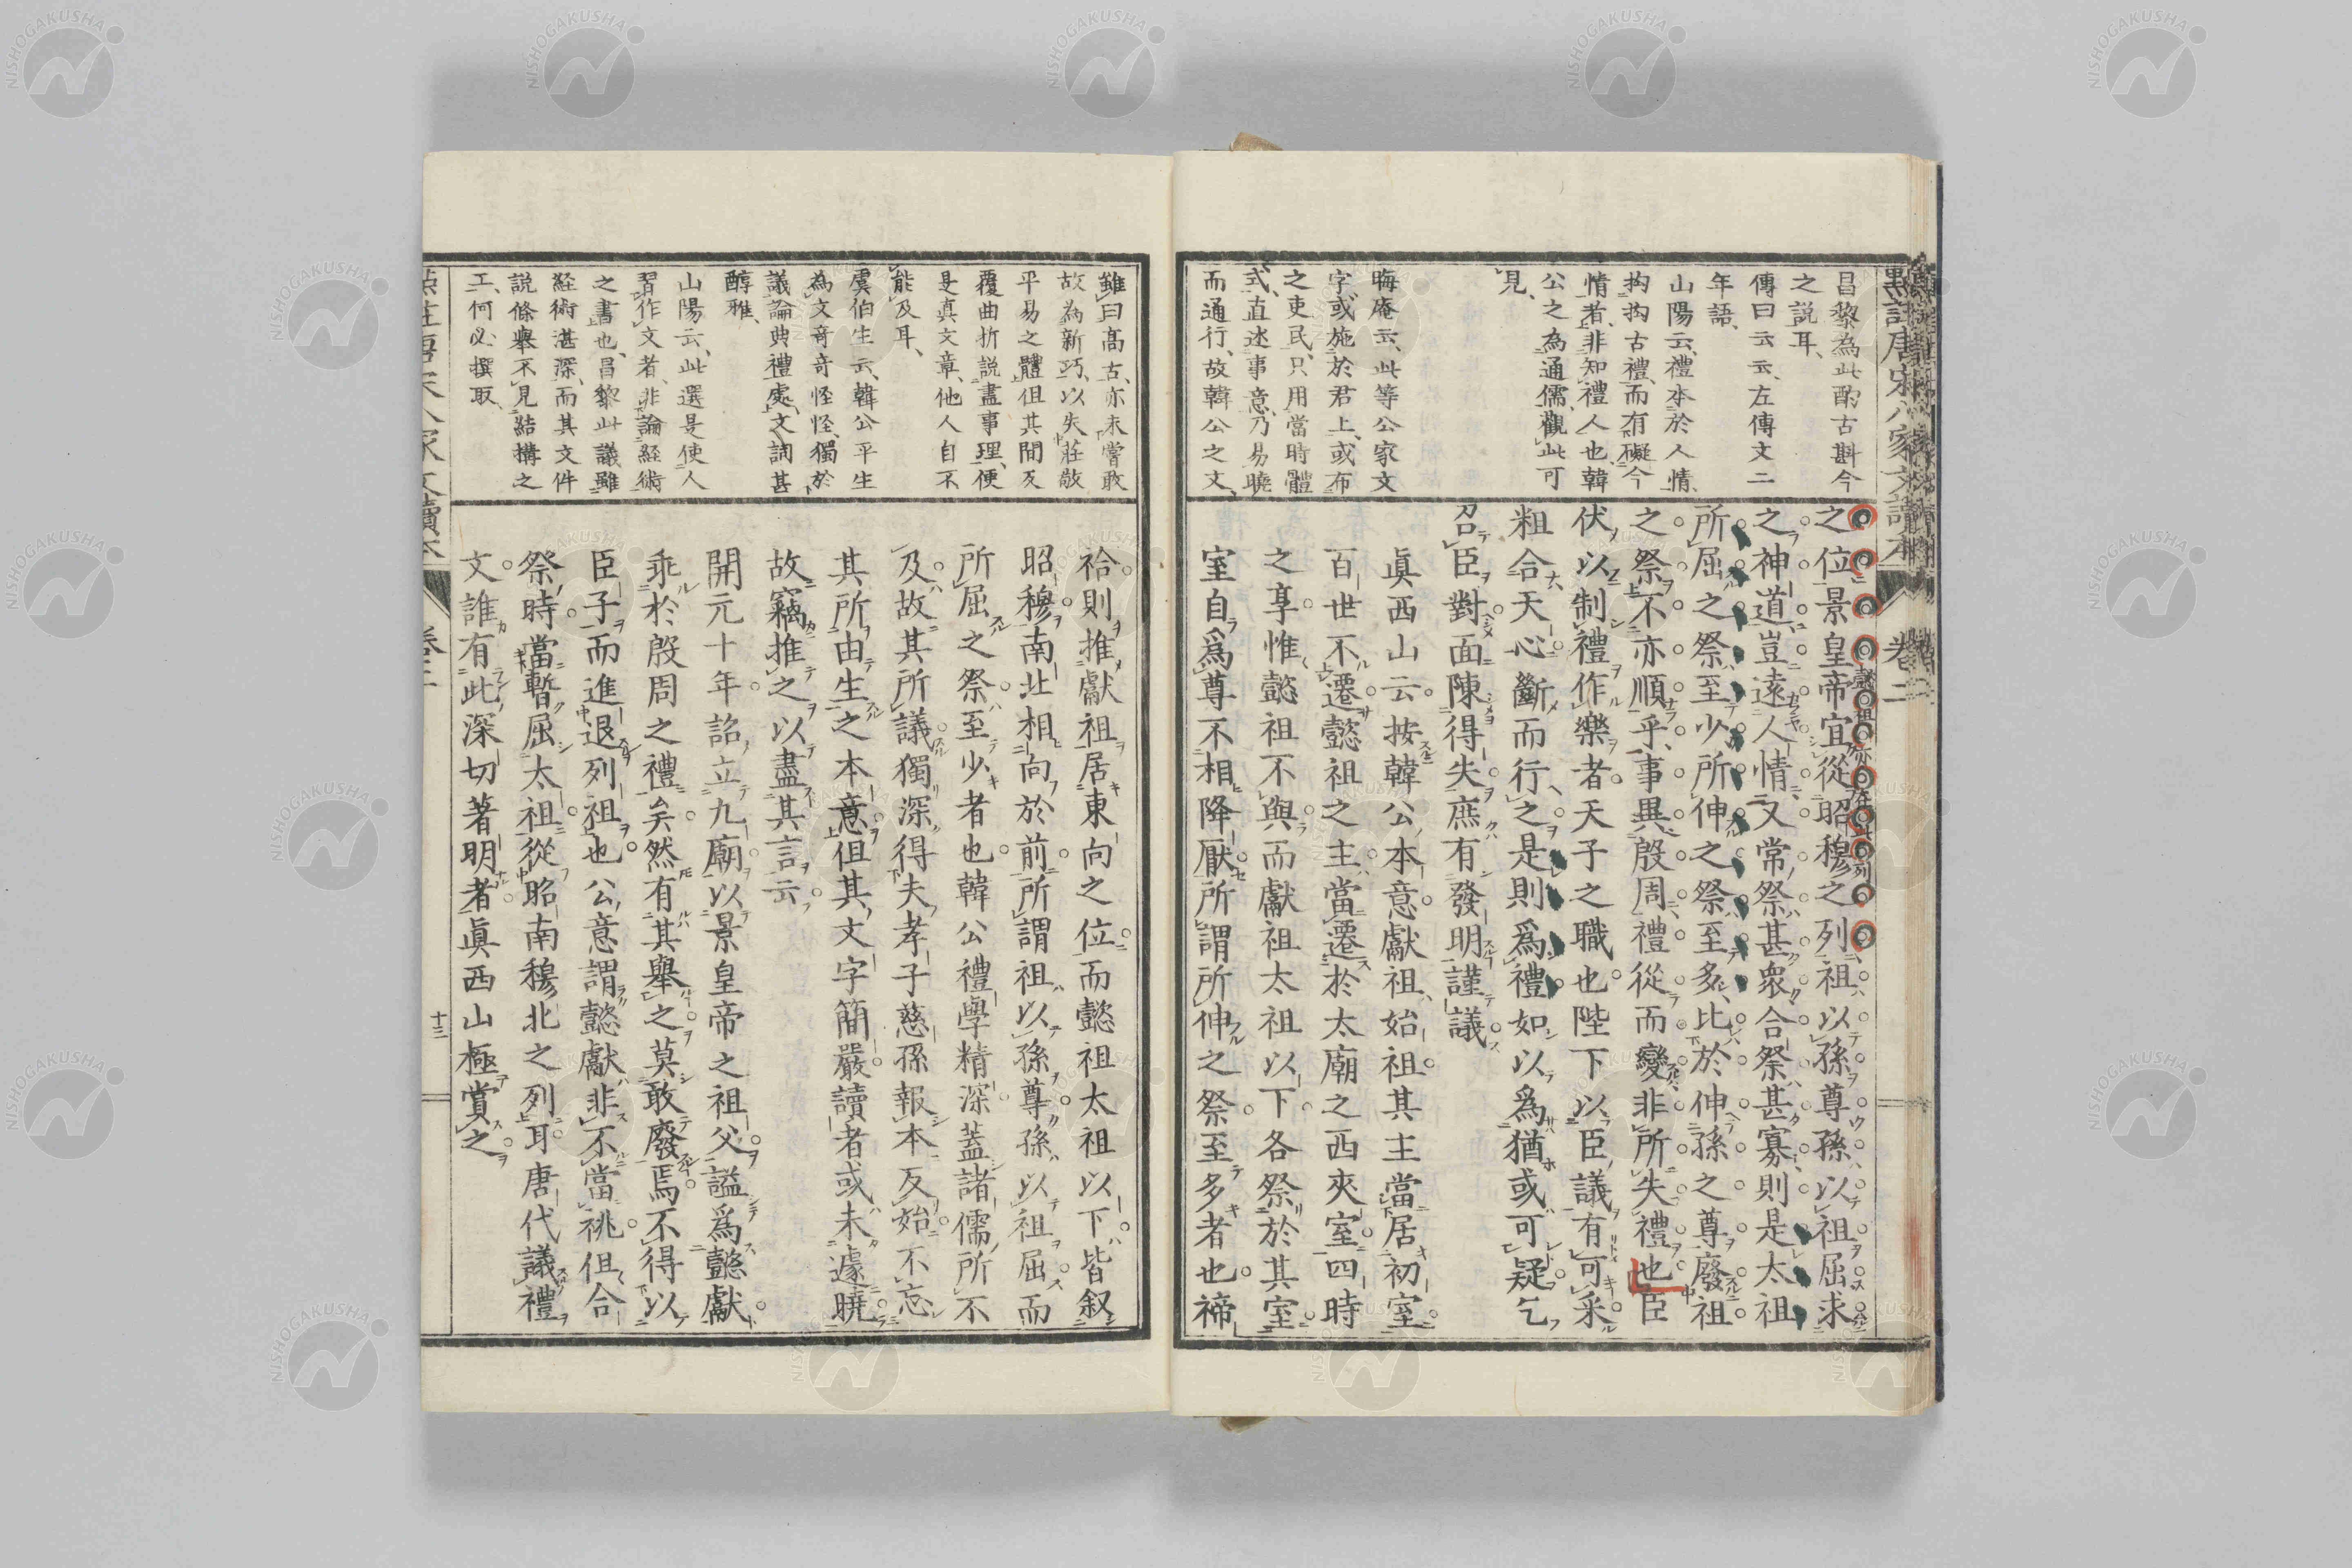 昌黎為此酌古斟今
之説耳、
傳曰云云、左傳文二
年語、
山陽云、禮本於人情、
拘拘古禮、而有礙今
情者、非知禮人也、韓
公之為通儒、觀此可
見、
晦庵云、此等公家文
字、或施於君上、或布
之吏民、只用當時體
式、直述事意、乃易曉
而通行、故韓公之文、
之位景皇帝宜從昭穆之列祖以孫尊孫以祖屈求
之神道豈遠人情又常祭甚衆合祭甚寡則是太祖
所屈之祭至少所伸之祭至多比於伸孫之尊廢祖
之祭不亦順乎事異殷周禮從而變非所失禮也臣
伏以制禮作樂者天子之職也陛下以臣議有可采
粗合天心斷而行之是則爲禮如以爲猶或可疑乞
召臣對面陳得失庶有發明謹議
眞西山云按韓公本意獻祖始祖其主當居初室
百世不遷懿祖之主當遷於太廟之西夾室四時
之享惟懿祖不與而獻祖太祖以下各祭於其室
室自爲尊不相降厭所謂所伸之祭至多者也禘
雖曰高古、亦未嘗敢
故為新巧、以失莊敬
平易之體、但其間反
覆曲折説盡事理、便
是真文章、他人自不
能及耳、
虞伯生云、韓公平生
為文奇奇怪怪、獨於
議論典禮處、文詞甚
醇雅、
山陽云、此選是使人
習作文者、非論経術
之書也、昌黎此議雖
経術湛深、而其文件
説條舉、不見結搆之
工、何必撰取、
祫則推獻祖居東向之位而懿祖太祖以下皆叙
昭穆南北相向於前所謂祖以孫尊孫以祖屈而
所屈之祭至少者也韓公禮學精深蓋諸儒所不
及故其所議獨深得夫孝子慈孫報本反始不忘
其所由生之本意但其文字簡嚴讀者或未遽曉
故竊推之以盡其言云
開元十年詔立九廟以景皇帝之祖父諡爲懿獻
乖於殷周之禮矣然有其舉之莫敢廢焉不得以
臣子而進退列祖也公意謂懿獻非不當祧但合
祭時當暫屈太祖從昭南穆北之列耳唐代議禮
文誰有此深切著明者眞西山極賞之
十三